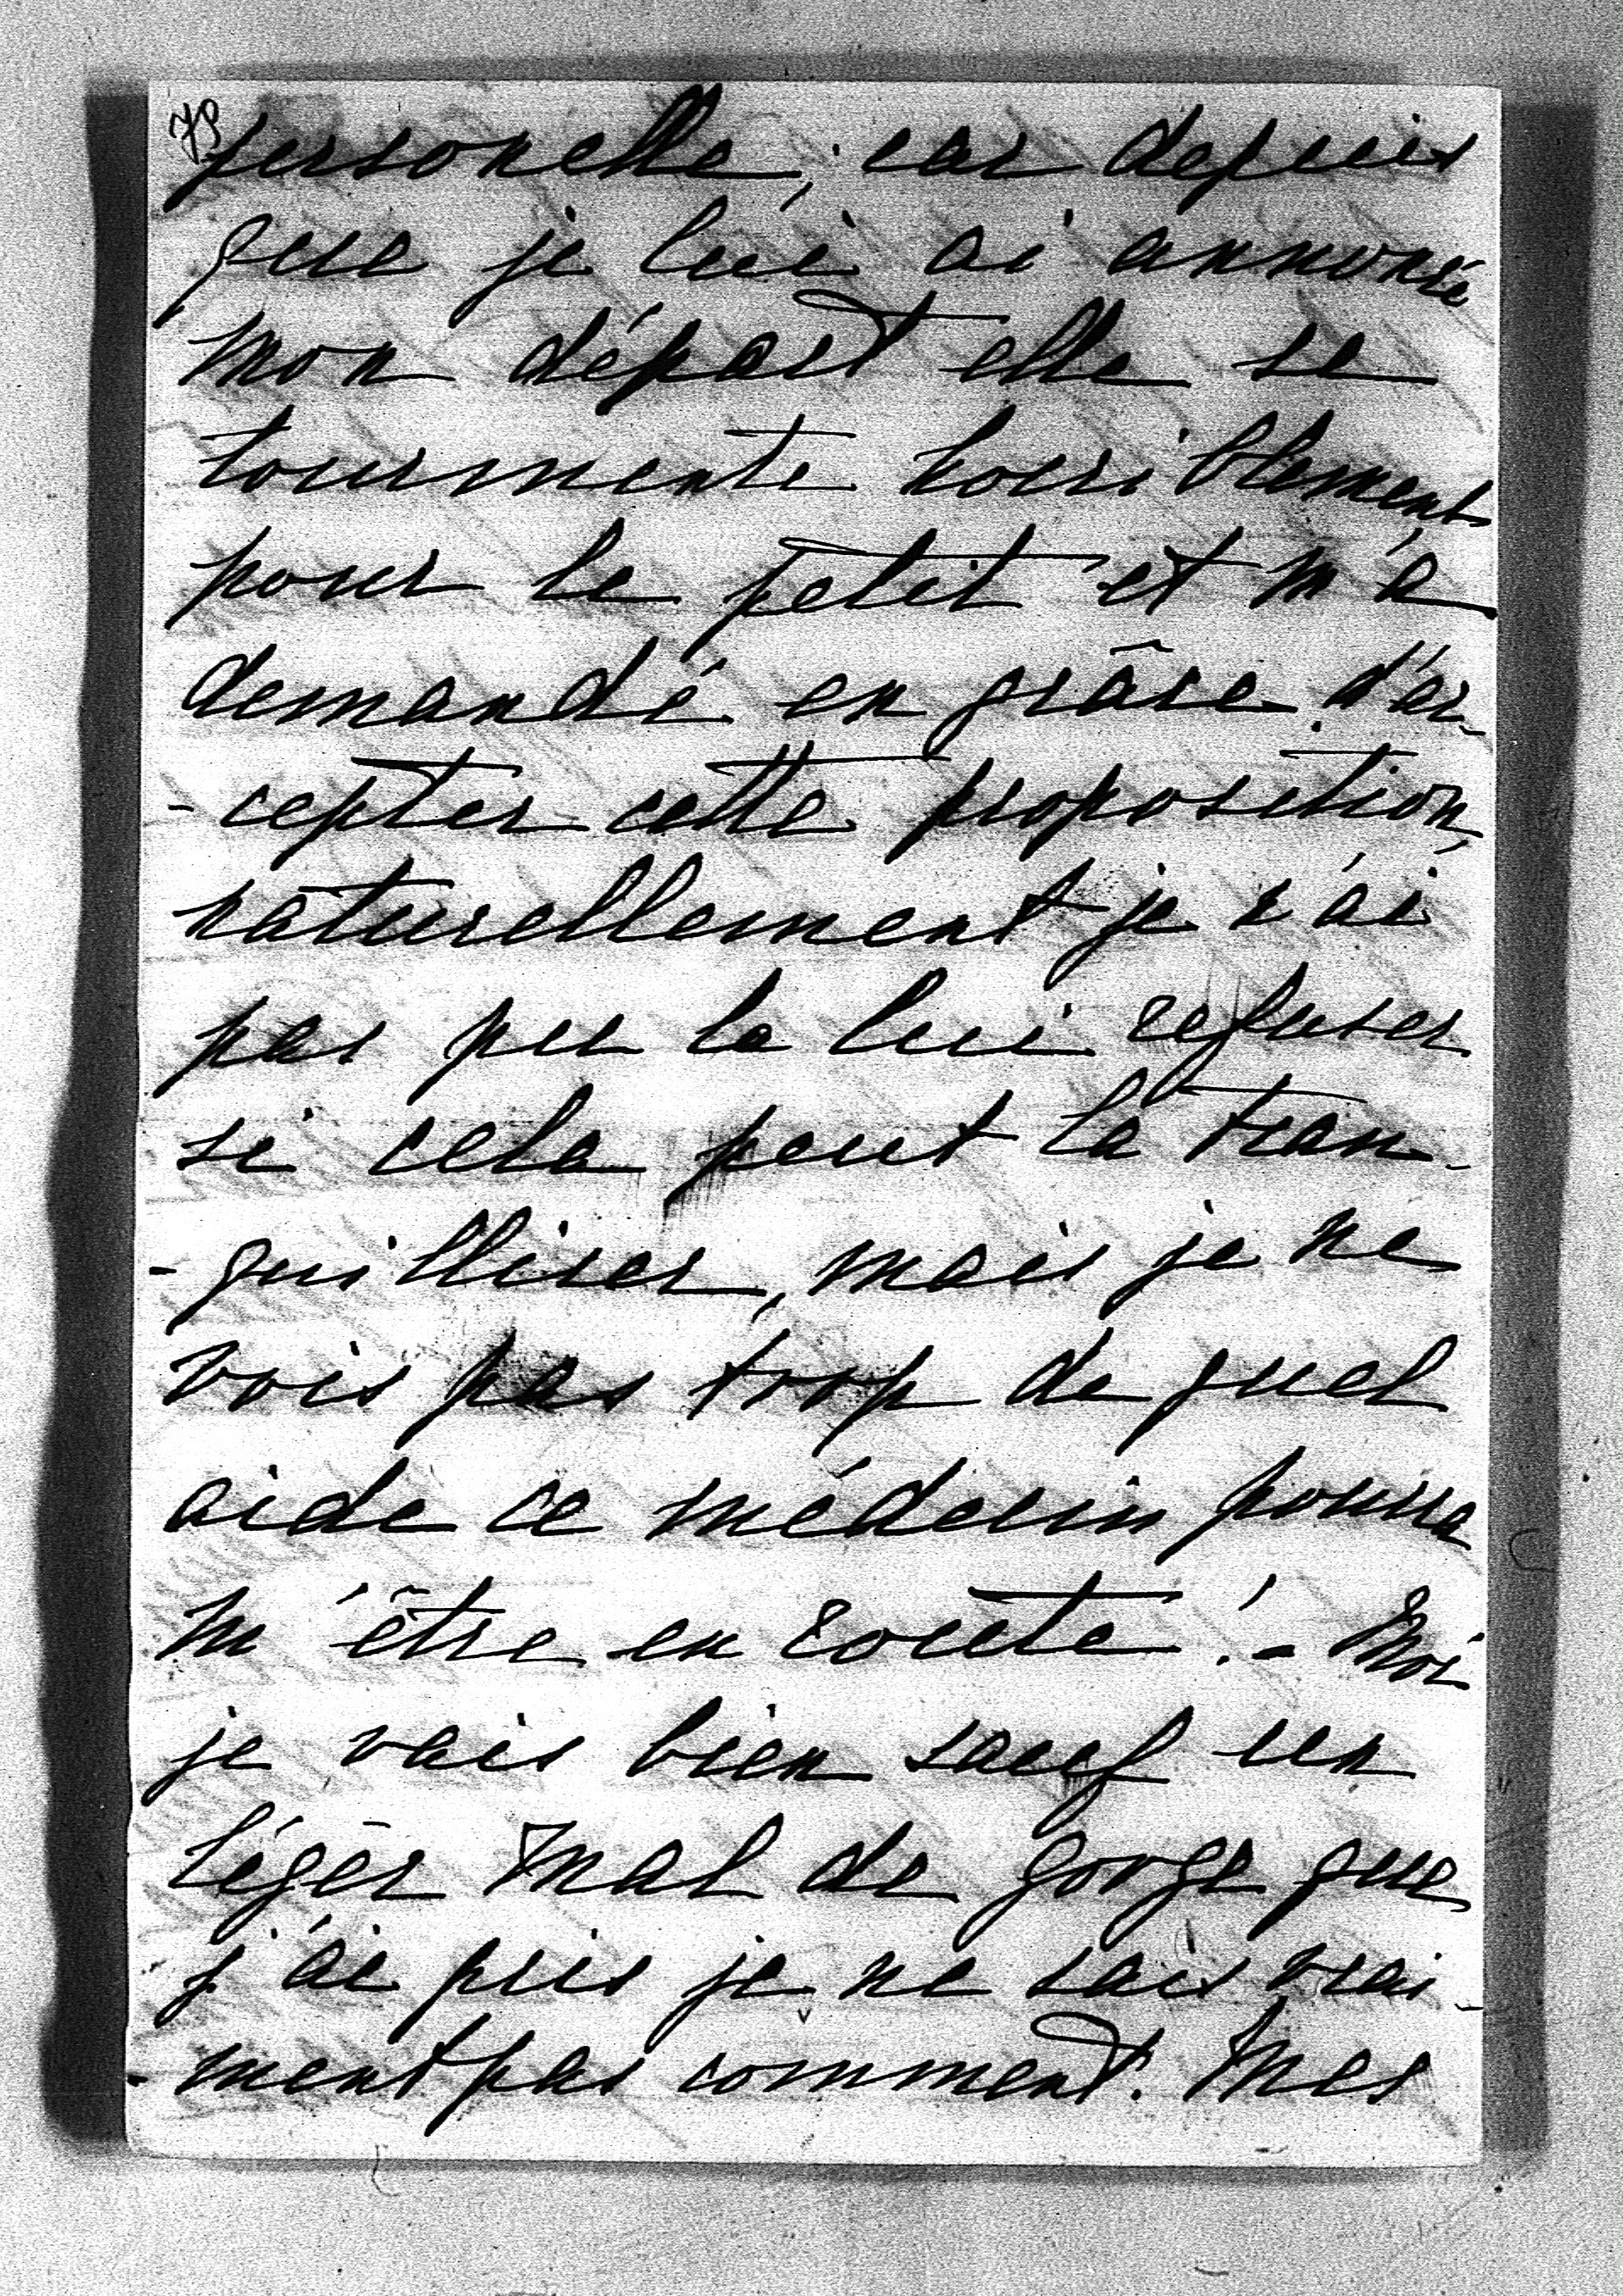 personelle, car depuis
que je lui ai annoncé
mon départ elle se
tourmente horriblement
pour le petit et m'a
demandé en grâce d'ac-
-cepter cette proposition,
naturellement je n'ai
pas pu la lui refuser
si cela peut la tran-
-quilliser, mais je ne
vois pas trop de quel
aide ce médecin pourra
m'être en route! - Moi
je vais bien sauf un
léger mal de gorge que
j'ai pris je ne sais vrai-
-ment pas comment. Mes